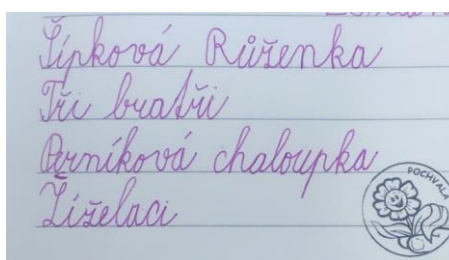 Šípková Růženka
Tři bratři
Perníková chaloupka
Žíželáci
POCHVALA